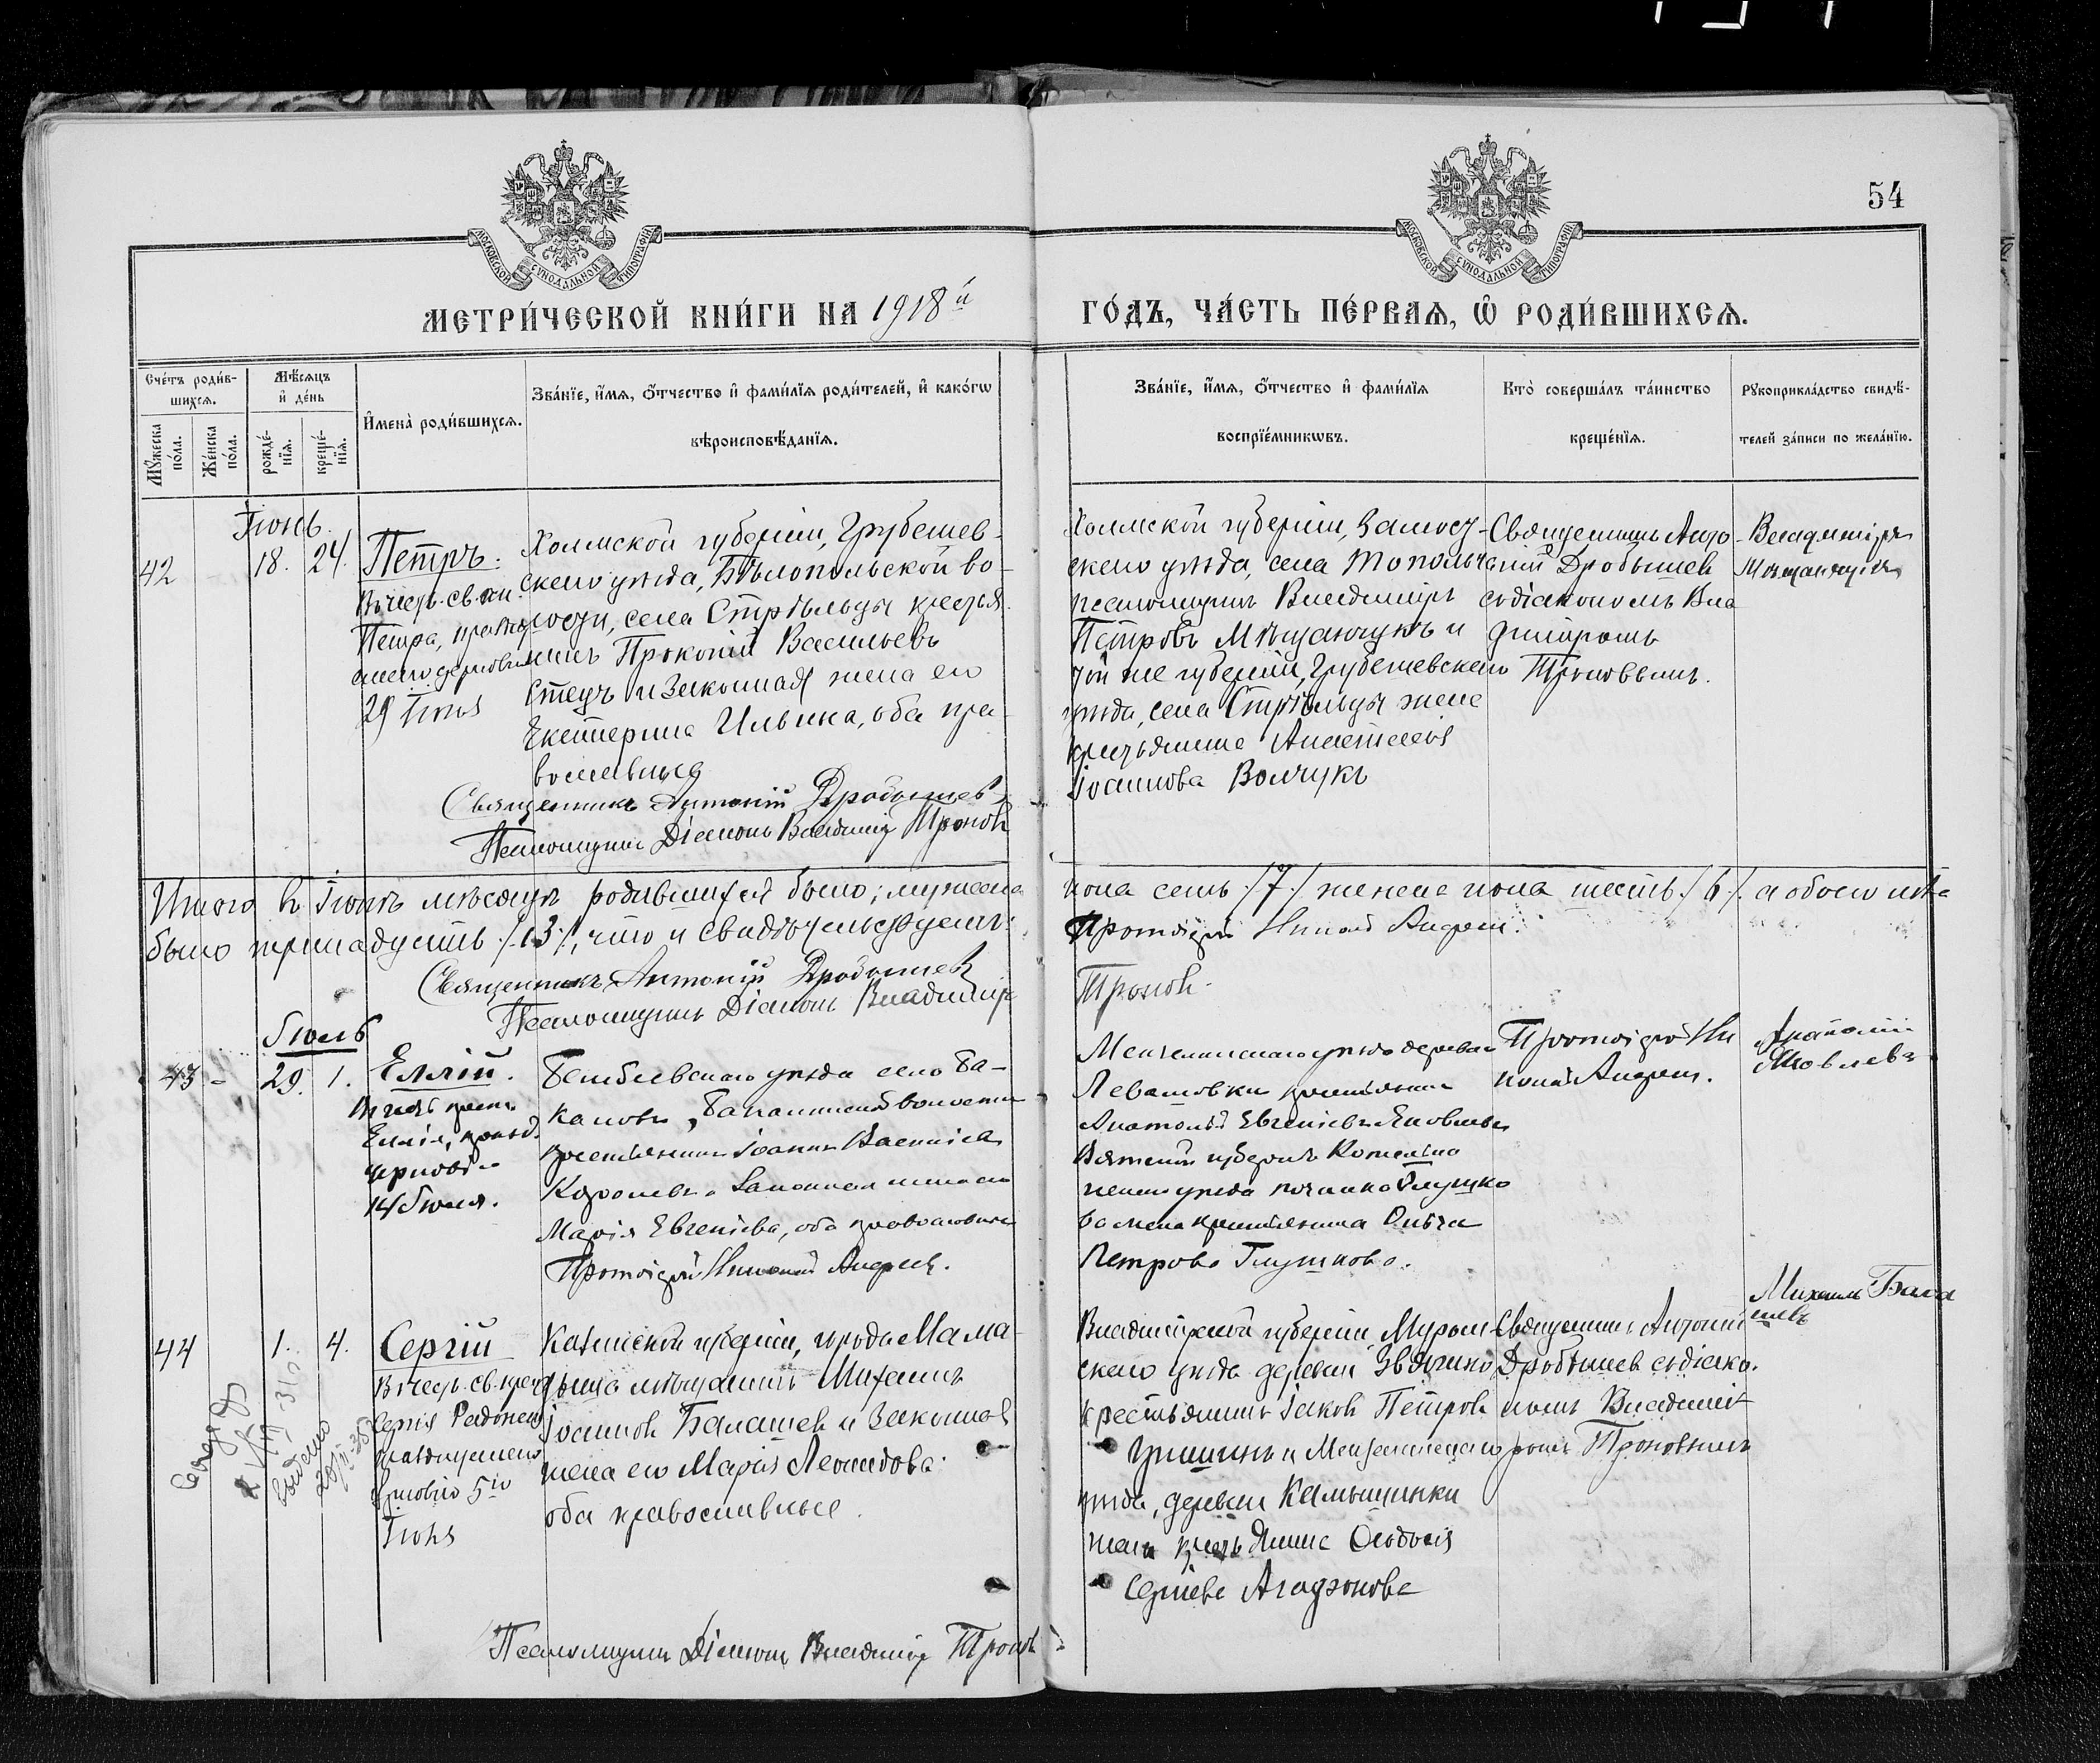 54
МОСКОВСКОЙ СѴНОДАЛЬНОЙ ТИПОГРАФІИ
МОСКОВСКОЙ СѴНОДАЛЬНОЙ ТИПОГРАФІИ
МЕТРИ́ЧЕСКОЙ КНИ́ГИ НА 1918й
ГО́ДЪ, ЧА́СТЬ ПЕ́РВАѦ, Ѽ РОДИ́ВШИХСѦ.
Сче́тъ роди́в-
шихсѧ.
Мꙋ́жеска по́ла.
Же́нска по́ла.
Мѣ́сѧцъ
и҆ де́нь
рожде́-
нїѧ.
креще́-
нїѧ.
И҆мена̀ роди́вшихсѧ.
Зва́нїе, и҆́мѧ, ѻ҆́тчество и҆ фами́лїѧ роди́телей, и҆ како́гѡ
вѣроисповѣ́данїѧ.
Зва́нїе, и҆́мѧ, ѻ҆́тчество и҆ фами́лїѧ
воспрїе́мникѡвъ.
Кто̀ соверша́лъ та́инство
креще́нїѧ.
Рꙋкоприкла́дство свидѣ́-
телей за́писи по жела́нїю.
Іюнь.
42
18. 24.
Петръ.
Въ честь св.
Петра,
29 Іюня
Холмской губерніи, Грубешев-
скаго уѣзда, Бѣлопольской во-
лости, села Стрѣльцы крестья-
нинъ Прокопій Васильевъ
Стецъ и законная жена его
Екатерина Ильина, оба пра-
вославные
Священникъ Антоній Дробышев
Псаломщикъ Діаконъ Владиміръ Тронов
Холмской губерніи, Замост-
скаго уѣзда, села Тополь
псаломщикъ Владиміръ
Петровъ Мѣщанчукъ и
той же губерніи, Грубешевскаго
уѣзда, села Стрѣльцы жена
крестьянина Анастасія
Іоаннова Волчукъ
Священникъ Анто-
ній Дробышев
съ діакономъ Вла
диміромъ
Троновымъ.
Владиміръ
Мѣщанчукъ
Итого въ Іюнѣ мѣсяцѣ родившихся было; мужеска
пола семь /7/ женска пола шесть /6/ а обоего пола
было тринадцать /13/, что и свидѣтельствуемъ:
Протоіерей Николай Андреев.
Священникъ Антоній Дробышев
Псаломщикъ Діаконъ Владиміръ
Тронов.
Іюль
43 - 29. 1.
Еллій.
Въ честь прор.
Еллія,
14 Іюля.
уѣзда село Ба-
волости
крестьянинъ Іоаннъ
Королевъ и законная жена его
Марія Евгеніева, оба православные
Протоіерей Николай Андреев.
Мензелинскаго уѣзда деревни
Левашовки крестьянинъ
Анатолій Евгеніевъ Яковлевъ
Вятской губерніи
уѣзда починка Глушко
ва жена крестьянина Ольга
Петрова Глушкова.
Протоіерей Ни
колай Андреев.
Анатолій
Яковлевъ
44
1. 4.
Сергій
Въ честь св.
Сергія Радонеж
5го
Іюля
выдано
Казанской губерніи, города Мама-
дыша мѣщанинъ Михаилъ
Іоаннов Балашев и законная
жена его Марія Леонидова
оба православные.
Владимірской губерніи Муром-
скаго уѣзда деревни Звягино
крестьянинъ Іаков Петров
Гришинъ и Мензелинскаго
уѣзда, деревни Камышинки
жена крестьянина
Сергіева Агафонова
Священникъ Антоній
Дробышев съ діако-
номъ Владимі-
ромъ Троновымъ
Михаилъ Бала
шевъ
Псаломщикъ Діаконъ Владиміръ Тронов